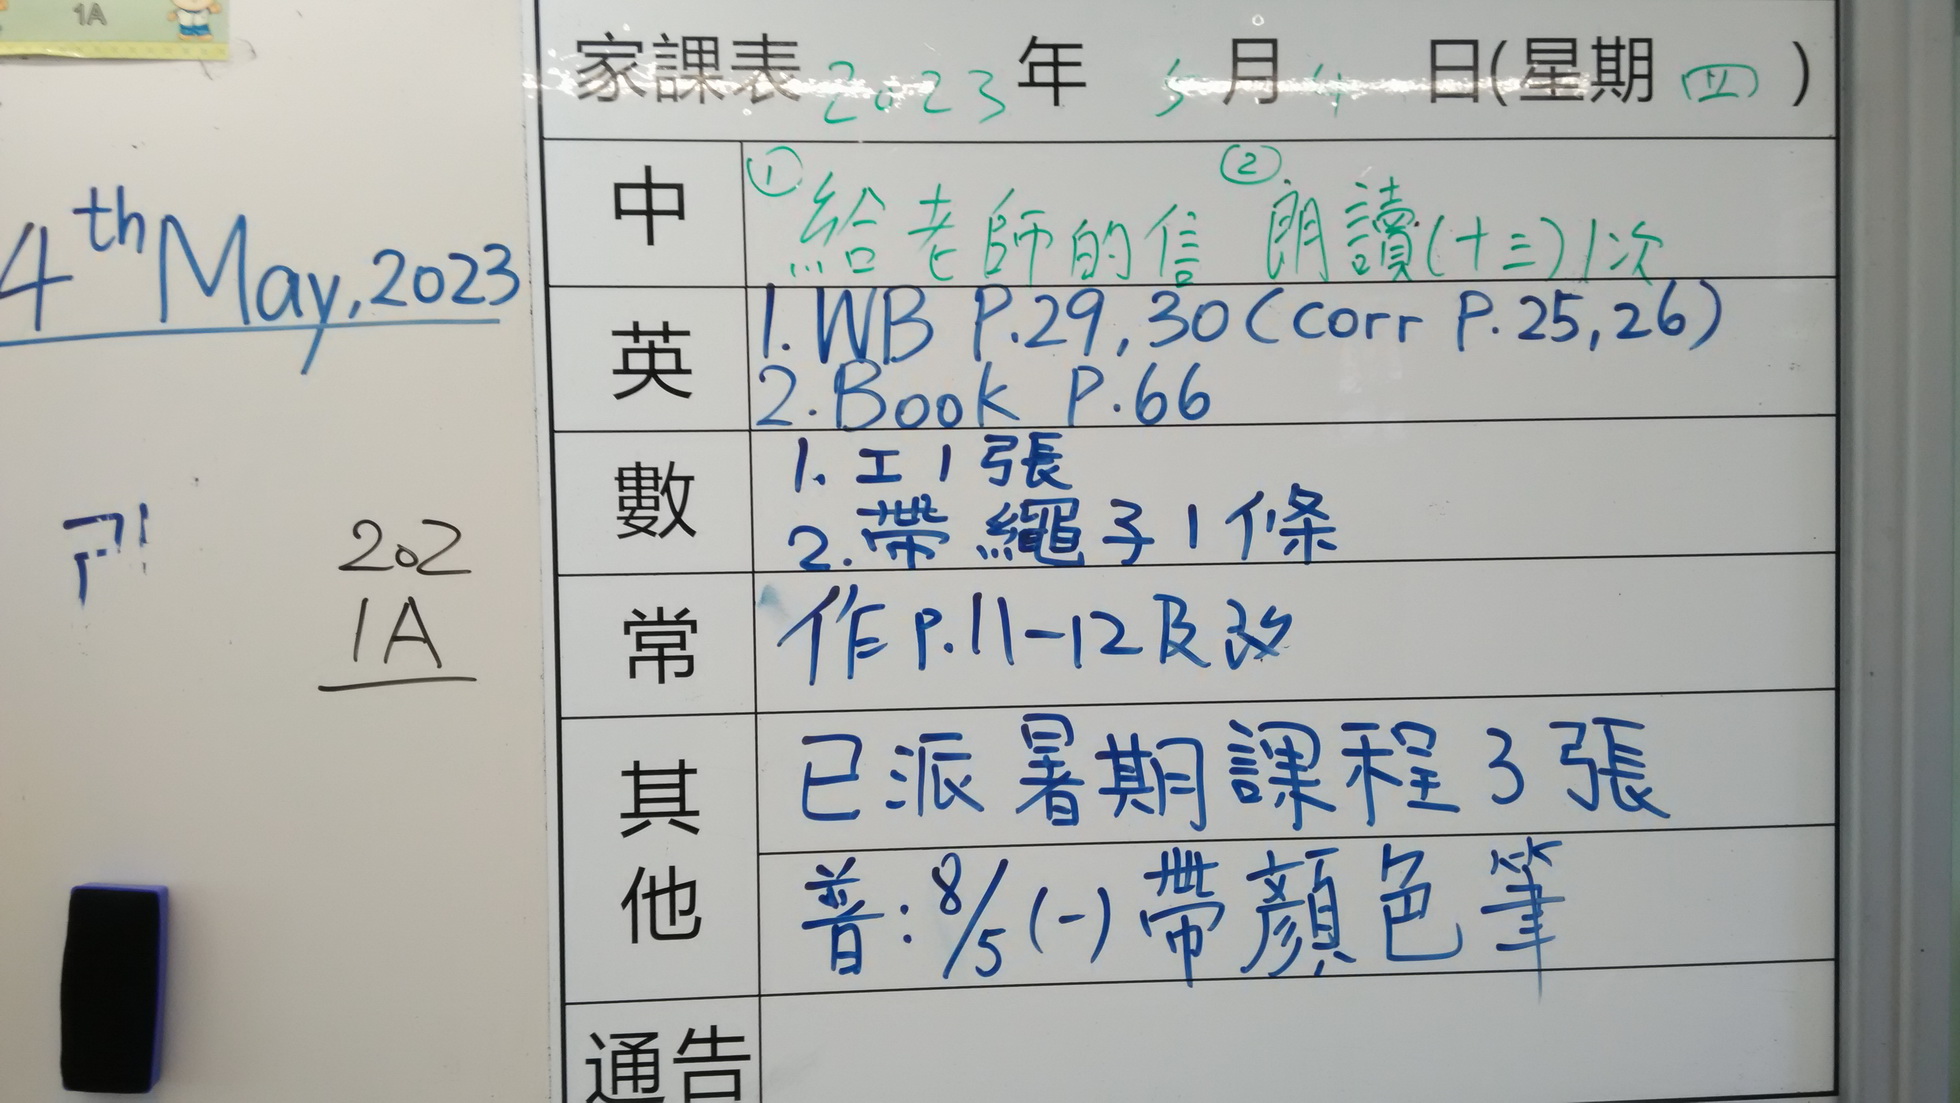 1A
4th May, 2023
202
1A
家課表 2023 年 5 月 4 日(星期 四)
中 ① 給老師的信 ② 朗讀(十三)1次
英 1. WB P.29, 30 (corr P. 25, 26)
2. Book P.66
數 1. 工1張
2. 帶繩子1條
常 作 P.11-12及改
其他 已派暑期課程3張
普: 8/5 (一) 帶顏色筆
通告